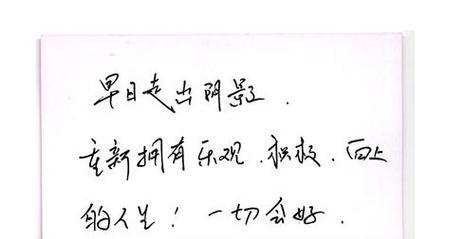 早日走出阴影.
重新拥有乐观.积极.向上
的人生！一切会好.